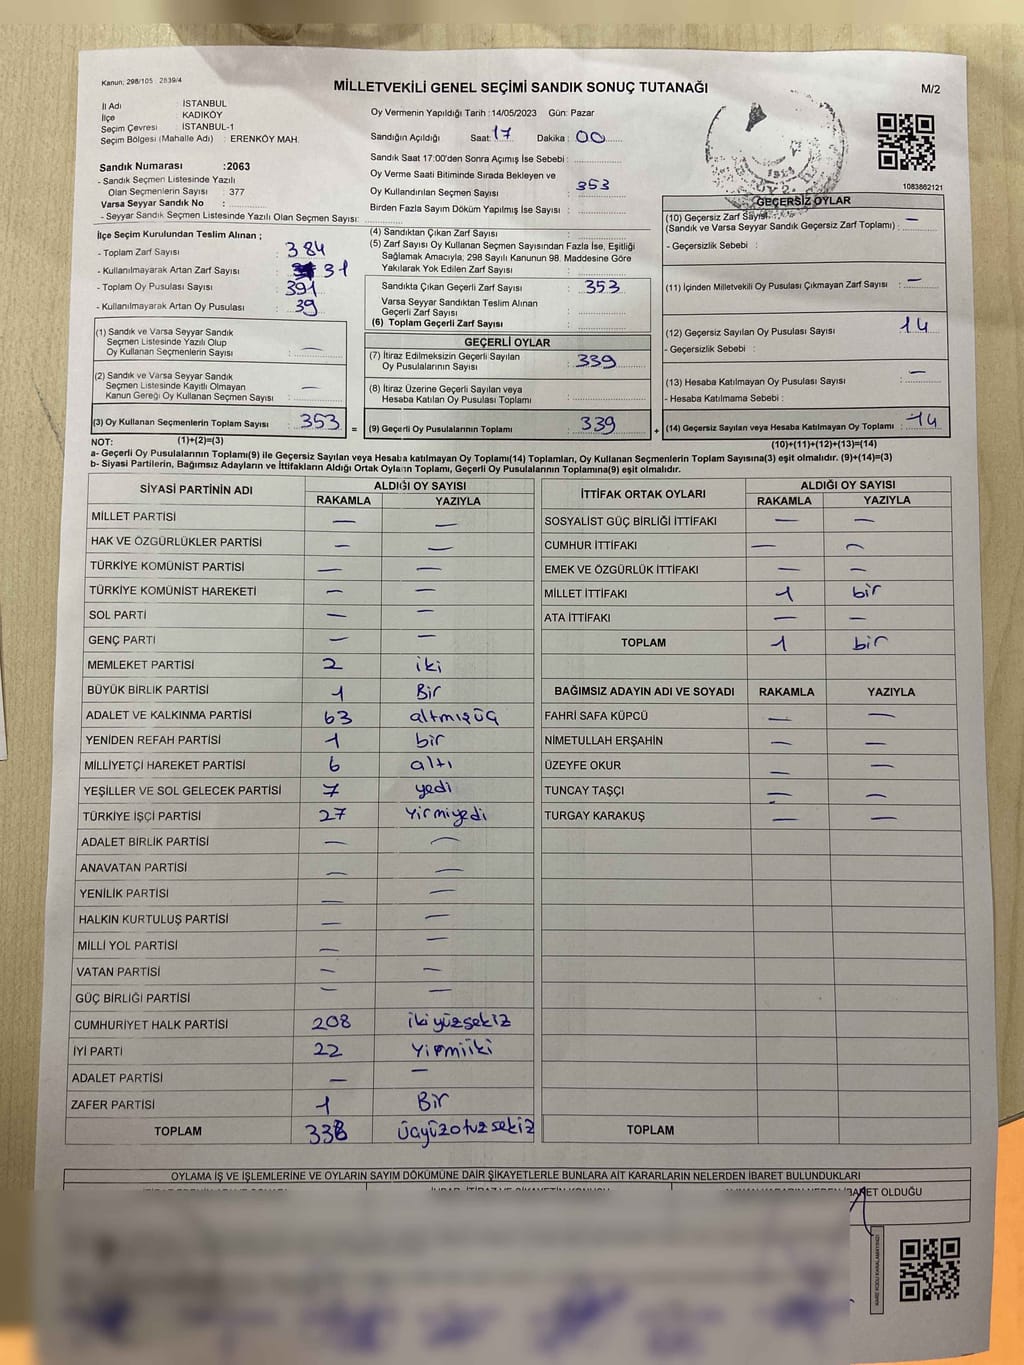 Kanun: 298/105 : 2839/4
MİLLETVEKİLİ GENEL SEÇİMİ SANDIK SONUÇ TUTANAĞI
M/2
İl Adı İSTANBUL
İlçe KADIKÖY
Seçim Çevresi İSTANBUL-1
Seçim Bölgesi (Mahalle Adı) : ERENKÖY MAH.
Oy Vermenin Yapıldığı Tarih :14/05/2023 Gün: Pazar
Sandığın Açıldığı Saat: 17 Dakika : 00
Sandık Saat 17:00'den Sonra Açımış İse Sebebi :
Oy Verme Saati Bitiminde Sırada Bekleyen ve
Oy Kullandırılan Seçmen Sayısı : 353
Birden Fazla Sayım Döküm Yapılmış İse Sayısı :
1083862121
Sandık Numarası :2063
- Sandık Seçmen Listesinde Yazılı
Olan Seçmenlerin Sayısı : 377
Varsa Seyyar Sandık No :
- Seyyar Sandık Seçmen Listesinde Yazılı Olan Seçmen Sayısı:
İlçe Seçim Kurulundan Teslim Alınan ;
- Toplam Zarf Sayısı : 384
- Kullanılmayarak Artan Zarf Sayısı : 31
- Toplam Oy Pusulası Sayısı : 391
- Kullanılmayarak Artan Oy Pusulası : 39
(1) Sandık ve Varsa Seyyar Sandık
Seçmen Listesinde Yazılı Olup
Oy Kullanan Seçmenlerin Sayısı : —
(2) Sandık ve Varsa Seyyar Sandık
Seçmen Listesinde Kayıtlı Olmayan
Kanun Gereği Oy Kullanan Seçmen Sayısı : —
(3) Oy Kullanan Seçmenlerin Toplam Sayısı : 353
=
(4) Sandıktan Çıkan Zarf Sayısı :
(5) Zarf Sayısı Oy Kullanan Seçmen Sayısından Fazla İse, Eşitliği
Sağlamak Amacıyla, 298 Sayılı Kanunun 98. Maddesine Göre
Yakılarak Yok Edilen Zarf Sayısı :
Sandıkta Çıkan Geçerli Zarf Sayısı : 353
Varsa Seyyar Sandıktan Teslim Alınan
Geçerli Zarf Sayısı :
(6) Toplam Geçerli Zarf Sayısı :
GEÇERLİ OYLAR
(7) İtiraz Edilmeksizin Geçerli Sayılan
Oy Pusulalarının Sayısı : 339
(8) İtiraz Üzerine Geçerli Sayılan veya
Hesaba Katılan Oy Pusulası Toplamı :
(9) Geçerli Oy Pusulalarının Toplamı : 339
+
GEÇERSİZ OYLAR
(10) Geçersiz Zarf Sayısı —
(Sandık ve Varsa Seyyar Sandık Geçersiz Zarf Toplamı) :
- Geçersizlik Sebebi :
(11) İçinden Milletvekili Oy Pusulası Çıkmayan Zarf Sayısı : —
(12) Geçersiz Sayılan Oy Pusulası Sayısı : 14
- Geçersizlik Sebebi :
(13) Hesaba Katılmayan Oy Pusulası Sayısı : —
- Hesaba Katılmama Sebebi :
(14) Geçersiz Sayılan veya Hesaba Katılmayan Oy Toplamı : 14
NOT: (1)+(2)=(3)
(10)+(11)+(12)+(13)=(14)
a- Geçerli Oy Pusulalarının Toplamı(9) ile Geçersiz Sayılan veya Hesaba katılmayan Oy Toplamı(14) Toplamları, Oy Kullanan Seçmenlerin Toplam Sayısına(3) eşit olmalıdır. (9)+(14)=(3)
b- Siyasi Partilerin, Bağımsız Adayların ve İttifakların Aldığı Ortak Oyların Toplamı, Geçerli Oy Pusulalarının Toplamına(9) eşit olmalıdır.
SİYASİ PARTİNİN ADI
ALDIĞI OY SAYISI
RAKAMLA YAZIYLA
MİLLET PARTİSİ — —
HAK VE ÖZGÜRLÜKLER PARTİSİ — —
TÜRKİYE KOMÜNİST PARTİSİ — —
TÜRKİYE KOMÜNİST HAREKETİ — —
SOL PARTİ — —
GENÇ PARTİ — —
MEMLEKET PARTİSİ 2 iki
BÜYÜK BİRLİK PARTİSİ 1 Bir
ADALET VE KALKINMA PARTİSİ 63 altmışüç
YENİDEN REFAH PARTİSİ 1 bir
MİLLİYETÇİ HAREKET PARTİSİ 6 altı
YEŞİLLER VE SOL GELECEK PARTİSİ 7 yedi
TÜRKİYE İŞÇİ PARTİSİ 27 Yirmiyedi
ADALET BİRLİK PARTİSİ — —
ANAVATAN PARTİSİ — —
YENİLİK PARTİSİ — —
HALKIN KURTULUŞ PARTİSİ — —
MİLLİ YOL PARTİSİ — —
VATAN PARTİSİ — —
GÜÇ BİRLİĞİ PARTİSİ — —
CUMHURİYET HALK PARTİSİ 208 ikiyüzsekiz
İYİ PARTİ 22 Yirmiiki
ADALET PARTİSİ — —
ZAFER PARTİSİ 1 Bir
TOPLAM 338 üçyüzotuzsekiz
İTTİFAK ORTAK OYLARI
ALDIĞI OY SAYISI
RAKAMLA YAZIYLA
SOSYALİST GÜÇ BİRLİĞİ İTTİFAKI — —
CUMHUR İTTİFAKI — —
EMEK VE ÖZGÜRLÜK İTTİFAKI — —
MİLLET İTTİFAKI 1 bir
ATA İTTİFAKI — —
TOPLAM 1 bir
BAĞIMSIZ ADAYIN ADI VE SOYADI RAKAMLA YAZIYLA
FAHRİ SAFA KÜPCÜ — —
NİMETULLAH ERŞAHİN — —
ÜZEYFE OKUR — —
TUNCAY TAŞÇI — —
TURGAY KARAKUŞ — —
TOPLAM
OYLAMA İŞ VE İŞLEMLERİNE VE OYLARIN SAYIM DÖKÜMÜNE DAİR ŞİKAYETLERLE BUNLARA AİT KARARLARIN NELERDEN İBARET BULUNDUKLARI
OLDUĞU